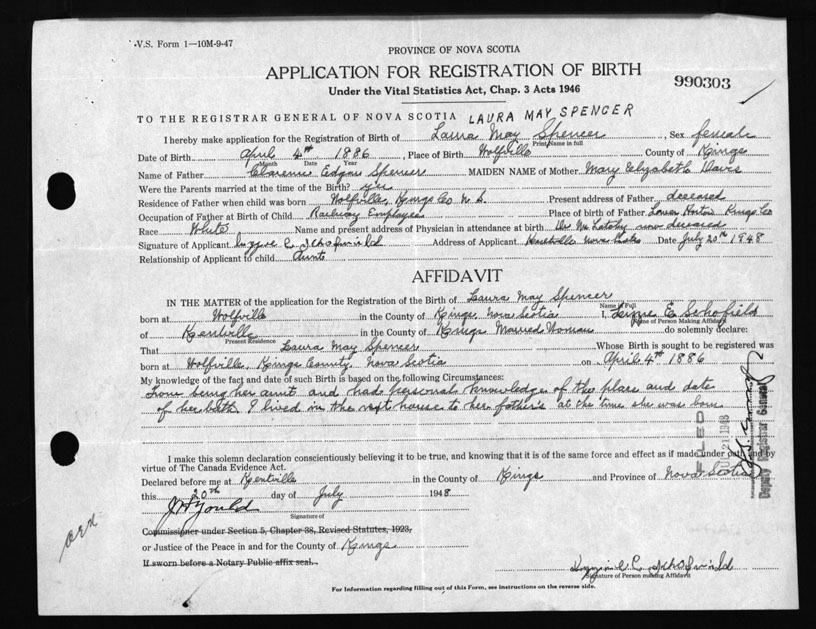 V.S. Form 1—10M-9-47
PROVINCE OF NOVA SCOTIA
APPLICATION FOR REGISTRATION OF BIRTH
990303
Under the Vital Statistics Act, Chap. 3 Acts 1946
TO THE REGISTRAR GENERAL OF NOVA SCOTIA LAURA MAY SPENCER
I hereby make application for the Registration of Birth of Laura May Spencer, Sex female
Print Name in full
Date of Birth April 4th 1886, Place of Birth Wolfville County of Kings
Month Date Year
Name of Father Clarence Edgar Spencer MAIDEN NAME of Mother Mary Elizabeth Davis
Were the Parents married at the time of the Birth? yes
Residence of Father when child was born Wolfville, Kings Co N.S. Present address of Father deceased
Occupation of Father at Birth of Child Railway Employee Place of birth of Father Lower Horton Kings Co
Race White Name and present address of Physician in attendance at birth Dr. now deceased
Signature of Applicant Address of Applicant Kentville Nova Scotia Date July 20th 1948
Relationship of Applicant to child Aunt
AFFIDAVIT
IN THE MATTER of the application for the Registration of the Birth of Laura May Spencer
Name in Full
born at Wolfville in the County of Kings Nova Scotia I, E Schofield
Name of Person Making Affidavit
of Kentville in the County of Kings Married Woman do solemnly declare:
Present Residence
That Laura May Spencer Whose Birth is sought to be registered was
born at Wolfville, Kings County, Nova Scotia on April 4th 1886
My knowledge of the fact and date of such Birth is based on the following Circumstances:
from being her aunt and had personal knowledge of the place and date
of her birth. I lived in the next house to her father's at the time she was born
I make this solemn declaration conscientiously believing it to be true, and knowing that it is of the same force and effect as if made under oath and by
virtue of The Canada Evidence Act.
Declared before me at Kentville in the County of Kings and Province of Nova Scotia
this 20th day of July 1948
Signature of
Commissioner under Section 5, Chapter 38, Revised Statutes, 1923,
or Justice of the Peace in and for the County of Kings
If sworn before a Notary Public affix seal.
Signature of Person making Affidavit
For Information regarding filling out of this Form, see instructions on the reverse side.
FILED
JUL 21 1948
Deputy Registrar General